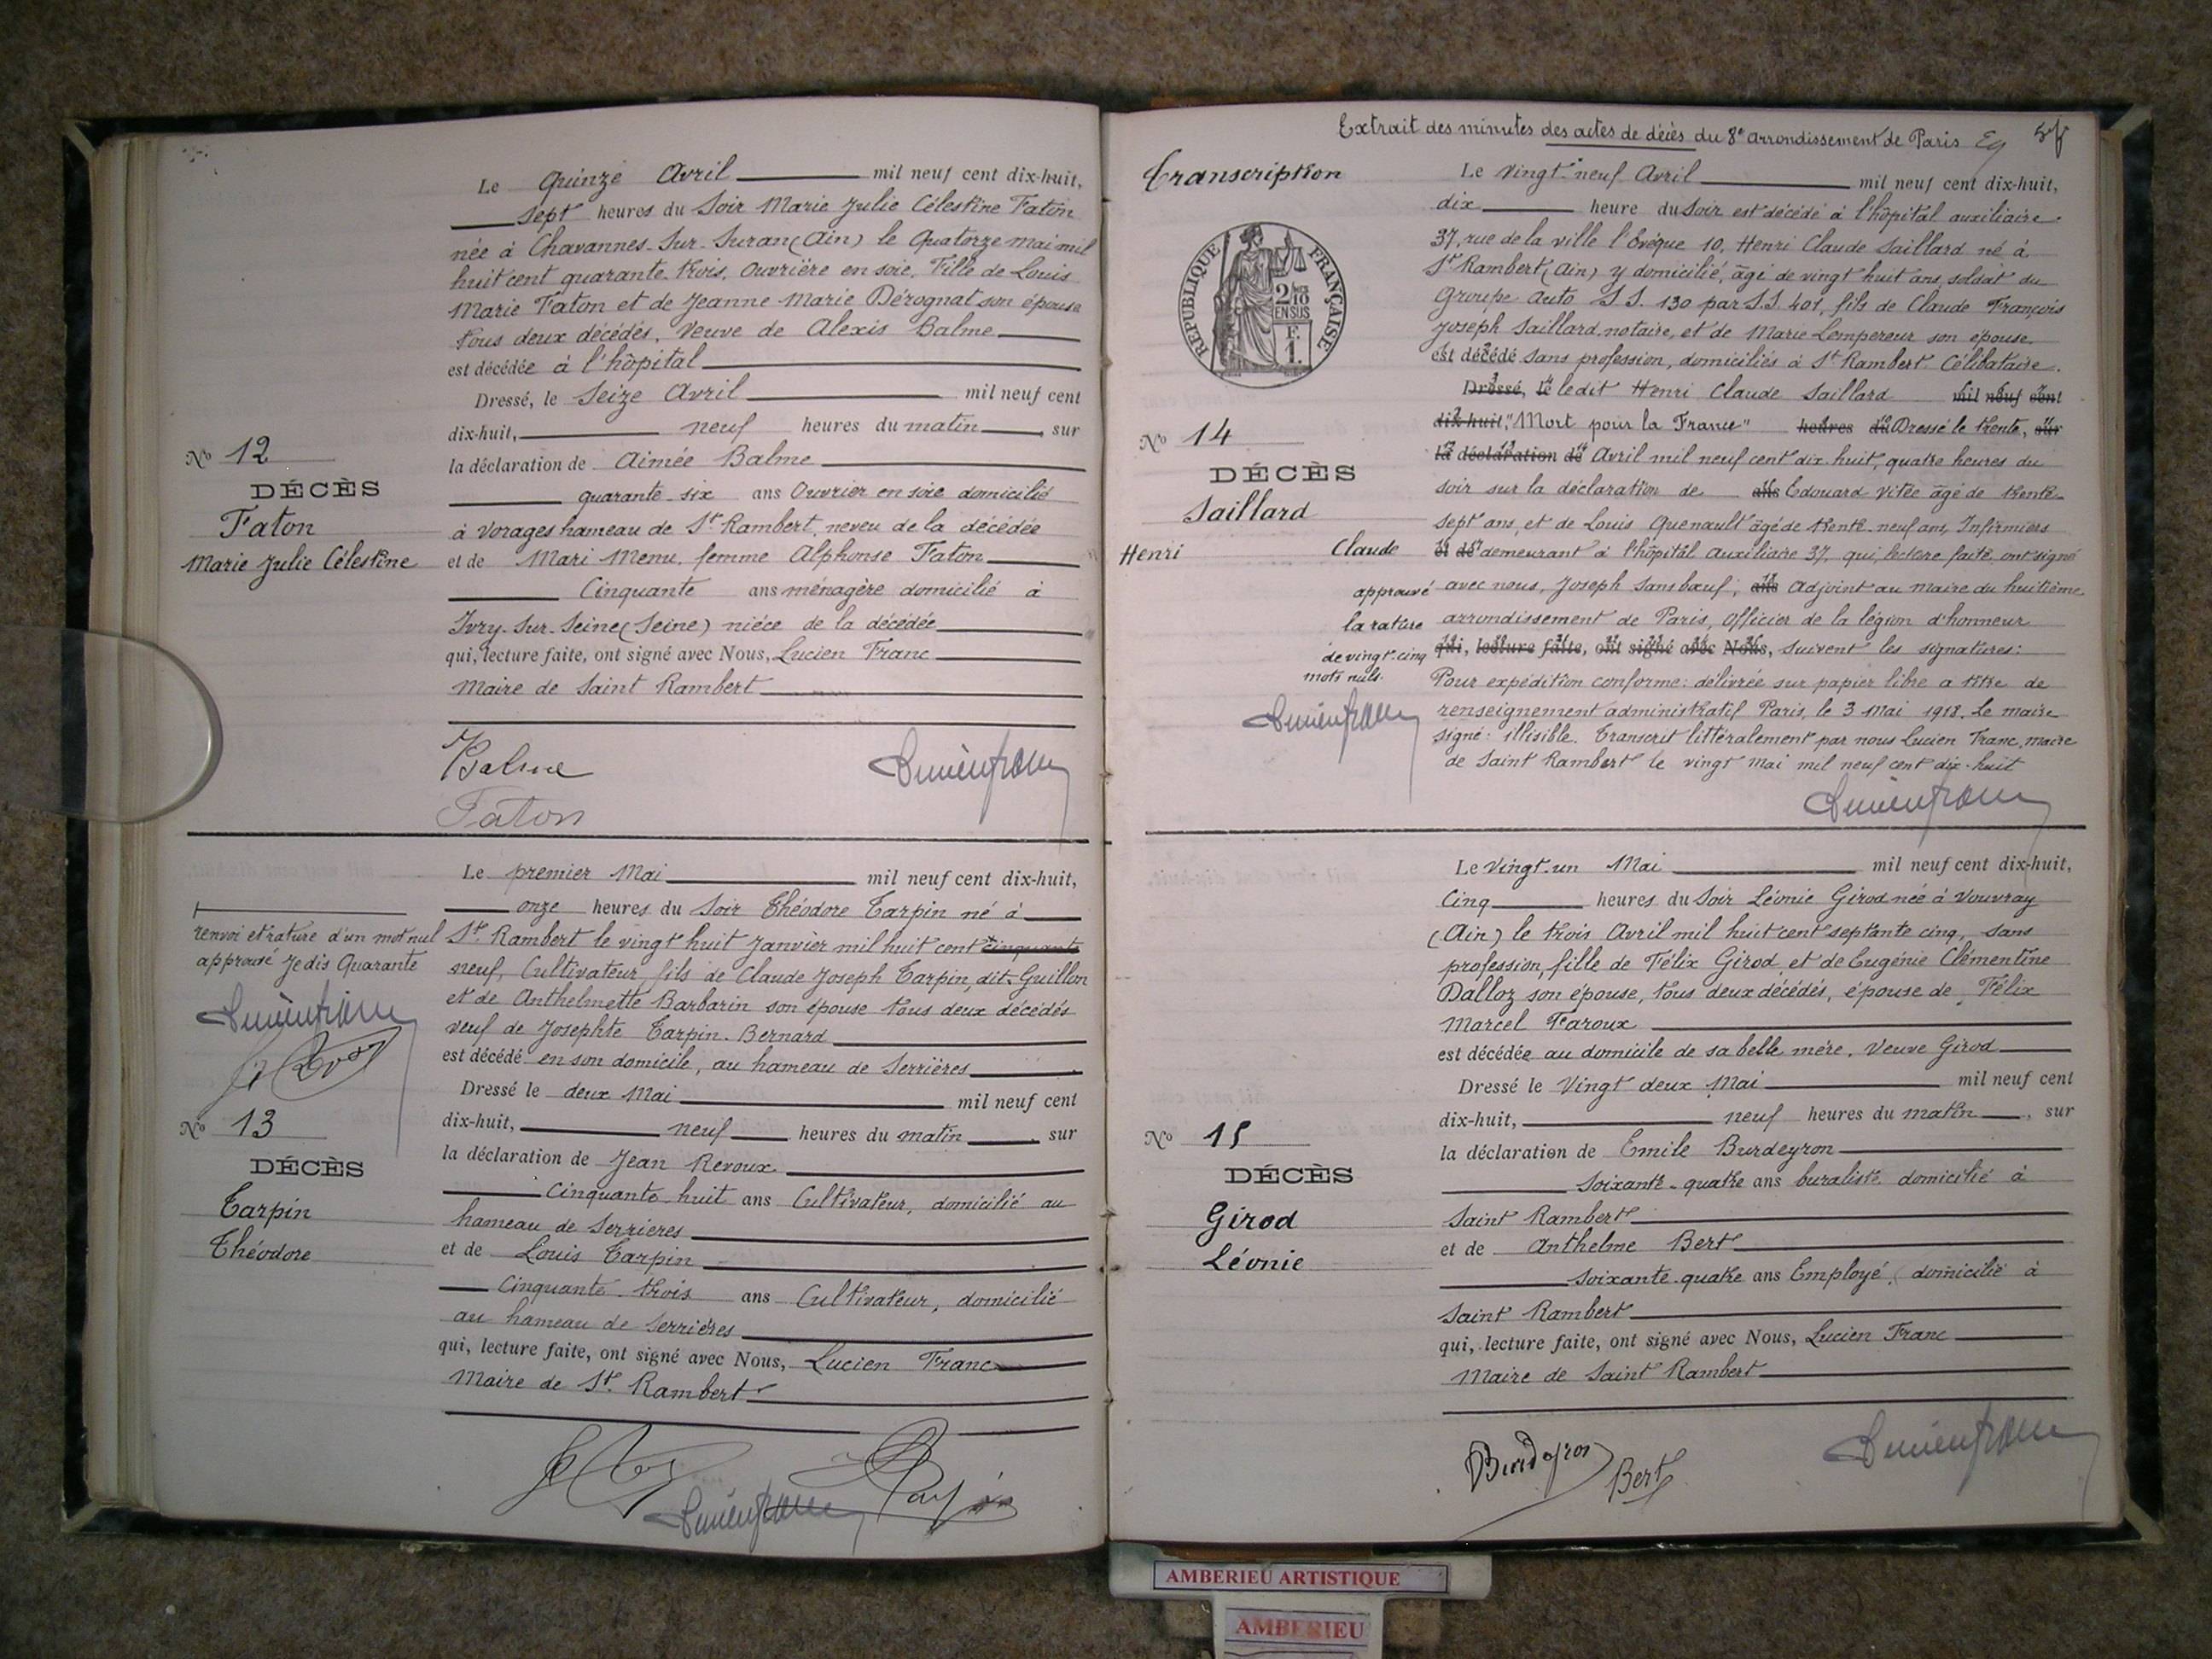 Le Quinze Avril mil neuf cent dix-huit,
sept heures du Soir Marie Julie Célestine Faton
née à Chavannes-Sur-Suran (Ain) le Quatorze mai mil
huit cent quarante-trois, Ouvrière en soie, Fille de Louis
Marie Faton et de Jeanne Marie Dérognat son épouse
tous deux décédés, Veuve de Alexis Balme
est décédée à l'hôpital
Dressé, le Seize Avril mil neuf cent
dix-huit, neuf heures du matin, sur
la déclaration de Aimée Balme
quarante-six ans Ouvrier en soie domicilié
à Vorages hameau de St Rambert, neveu de la décédée
et de Mari Menu, femme Alphonse Faton
Cinquante ans ménagère domicilié à
Ivry-Sur-Seine (Seine) nièce de la décédée
qui, lecture faite, ont signé avec Nous, Lucien Franc
Maire de Saint Rambert
No 12
DÉCÈS
Faton
Marie Julie Célestine
Balme
Faton
Le premier Mai mil neuf cent dix-huit,
onze heures du Soir Théodore Tarpin né à
St. Rambert le vingt huit Janvier mil huit cent cinquante
neuf, Cultivateur, fils de Claude Joseph Tarpin, dit Guillon
et de Anthelmette Barbarin son épouse tous deux décédés
veuf de Josephte Tarpin-Bernard
est décédé en son domicile, au hameau de Serrières
Dressé le deux Mai mil neuf cent
dix-huit, neuf heures du matin, sur
la déclaration de Jean Revoux
Cinquante huit ans Cultivateur, domicilié au
hameau de Serrieres
et de Louis Tarpin
Cinquante-trois ans Cultivateur, domicilié
au hameau de Serrières
qui, lecture faite, ont signé avec Nous, Lucien Franc
Maire de St. Rambert
renvoi et rature d'un mot nul
approuvé Je dis Quarante
No 13
DÉCÈS
Tarpin
Théodore
Extrait des minutes des actes de décès du 8e arrondissement de Paris
Transcription
RÉPUBLIQUE FRANÇAISE
2/10
EN SUS
F.
1.
Le Vingt-neuf Avril mil neuf cent dix-huit,
dix heure du Soir est décédé à l'hôpital auxiliaire
37, rue de la ville l'Evéque 10, Henri Claude Saillard né à
St Rambert (Ain) y domicilié, âgé de vingt huit ans, soldat du
Groupe Auto S S. 130 par S.S. 401, fils de Claude François
Joseph Saillard notaire, et de Marie Lempereur son épouse
est décédé sans profession, domiciliés à St Rambert. Célibataire.
Dressé, le ledit Henri Claude Saillard mil neuf cent
dix-huit, "Mort pour la France" heures du Dressé le trente, sur
la déclaration de Avril mil neuf cent dix-huit, quatre heures du
soir sur la déclaration de ans Edouard Vitée âgé de trente-
sept ans, et de Louis Quenault âgé de trente-neuf ans, Infirmiers
et de demeurant à l'hôpital auxiliaire 37, qui, lecture faite, ont signé
avec nous, Joseph Sansbœuf, ans Adjoint au Maire du huitième
arrondissement de Paris, Officier de la légion d'honneur
qui, lecture faite, ont signé avec Nous, Suivent les signatures:
Pour expédition conforme: délivrée sur papier libre a titre de
renseignement administratif Paris, le 3 Mai 1918. Le maire
signé: illisible. Transcrit littéralement par nous Lucien Franc, maire
de Saint Rambert le vingt mai mil neuf cent dix-huit
No 14
DÉCÈS
Saillard
Henri Claude
approuvé
la rature
de vingt-cinq
mots nuls.
Le Vingt-un Mai mil neuf cent dix-huit,
Cinq heures du Soir Léonie Girod née à Vouvray
(Ain) le trois Avril mil huit cent septante cinq, sans
profession, fille de Félix Girod, et de Eugénie Clémentine
Dalloz son épouse, tous deux décédés, épouse de Félix
Marcel Faroux
est décédée au domicile de sa belle mère, Veuve Girod
Dressé le Vingt deux Mai mil neuf cent
dix-huit, neuf heures du matin, sur
la déclaration de Emile Burdeyron
Soixante-quatre ans buraliste domicilié à
Saint Rambert
et de Anthelme Bert
Soixante-quatre ans Employé, domicilié à
Saint Rambert
qui, lecture faite, ont signé avec Nous, Lucien Franc
Maire de Saint Rambert
No 15
DÉCÈS
Girod
Léonie
Burdeyron
Bert
AMBERIEU ARTISTIQUE
AMBERIEU